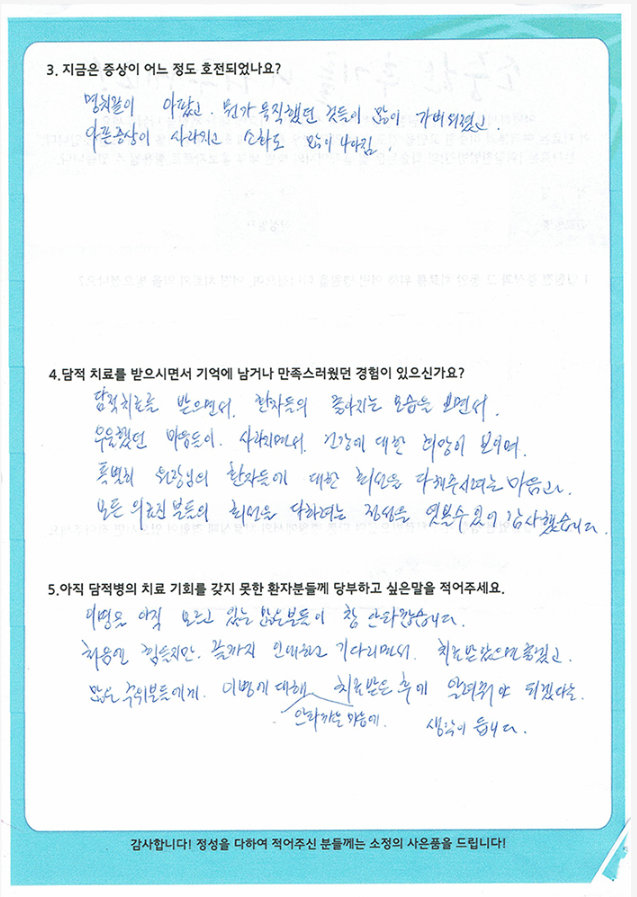 3. 지금은 증상이 어느 정도 호전되었나요?
명치끝이 아팠고. 뭔가 묵직했던 것들이 많이 가벼워졌고.
아픈증상이 사라지고 소화도 많이 나아짐.
4.담적 치료를 받으시면서 기억에 남거나 만족스러웠던 경험이 있으신가요?
담적치료를 받으면서. 환자들의 좋아지는 모습을 보면서.
우울했던 마음들이. 사라지면서. 건강에 대한 희망이 보이며.
특별히 원장님의 환자들에 대한 최선을 다해주시려는 마음과.
모든 의료진분들의 최선을 다하려는 정성을 엿볼수 있어 감사했습니다.
5.아직 담적병의 치료 기회를 갖지 못한 환자분들께 당부하고 싶은말을 적어주세요.
이병을 아직 모르고 있는 많은분들이 참 안타깝습니다.
처음엔 힘들지만. 끝까지 인내하고 기다리면서. 치료받았으면 좋겠고.
많은 주위분들에게. 이병에 대해 치료받은 후에 알려줘야 되겠다는
안타까운 마음에. 생각이 듭니다.
감사합니다! 정성을 다하여 적어주신 분들께는 소정의 사은품을 드립니다!